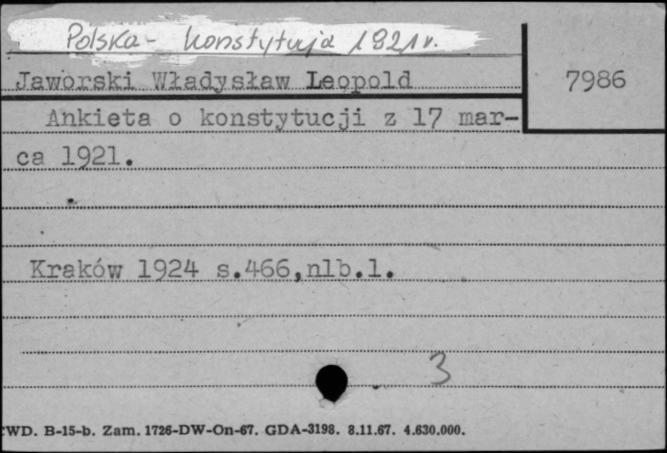 Polska - konstytucja 1921 r.
Jaworski Władysław Leopold
7986
Ankieta o konstytucji z 17 mar-
ca 1921.
Kraków 1924 s.466,nlb.1.
3
WD. B-15-b. Zam. 1726-DW-On-67. GDA-3198. 8.11.67. 4.630.000.